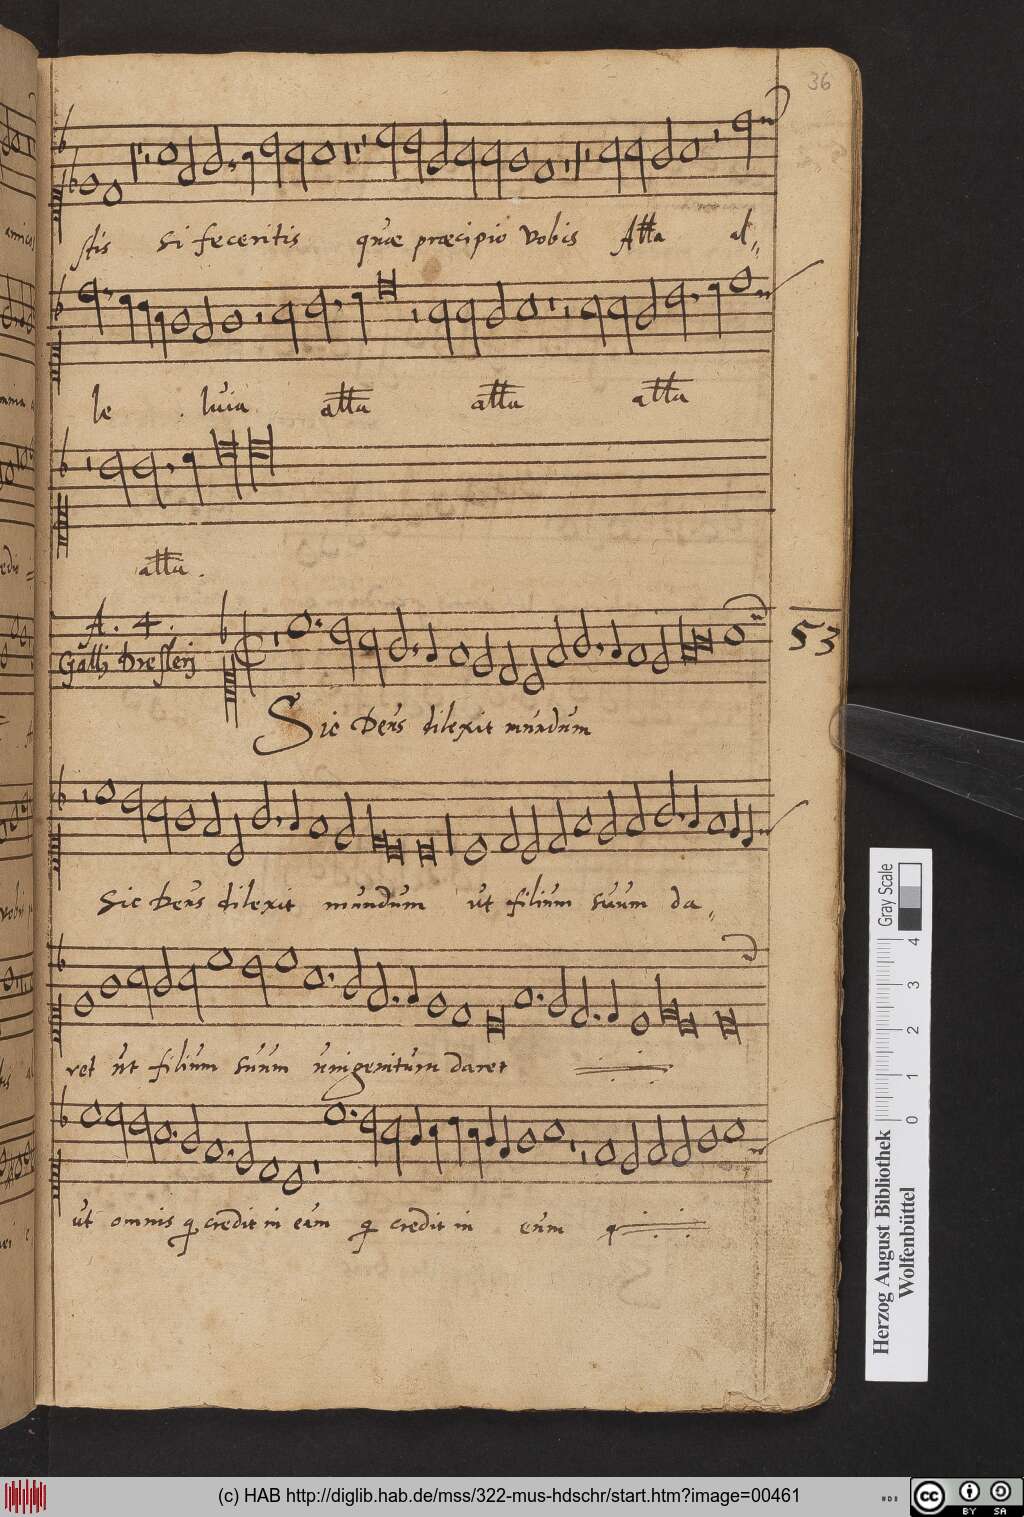 36
stis si feceritis quæ præcipio vobis Alla al„
le luia alla alla alla
alla.
A. 4.
Galli Dresseri
53
Sic Deus dilexit mundum
Sic Deus dilexit mundum ut filium suum da„
ret ut filium suum unigenitum daret
ut omnis q credit in eum q credit in eum q
Gray Scale
0 1 2 3 4
Herzog August Bibliothek
Wolfenbüttel
(c) HAB http://diglib.hab.de/mss/322-mus-hdschr/start.htm?image=00461
HAB
cc BY SA